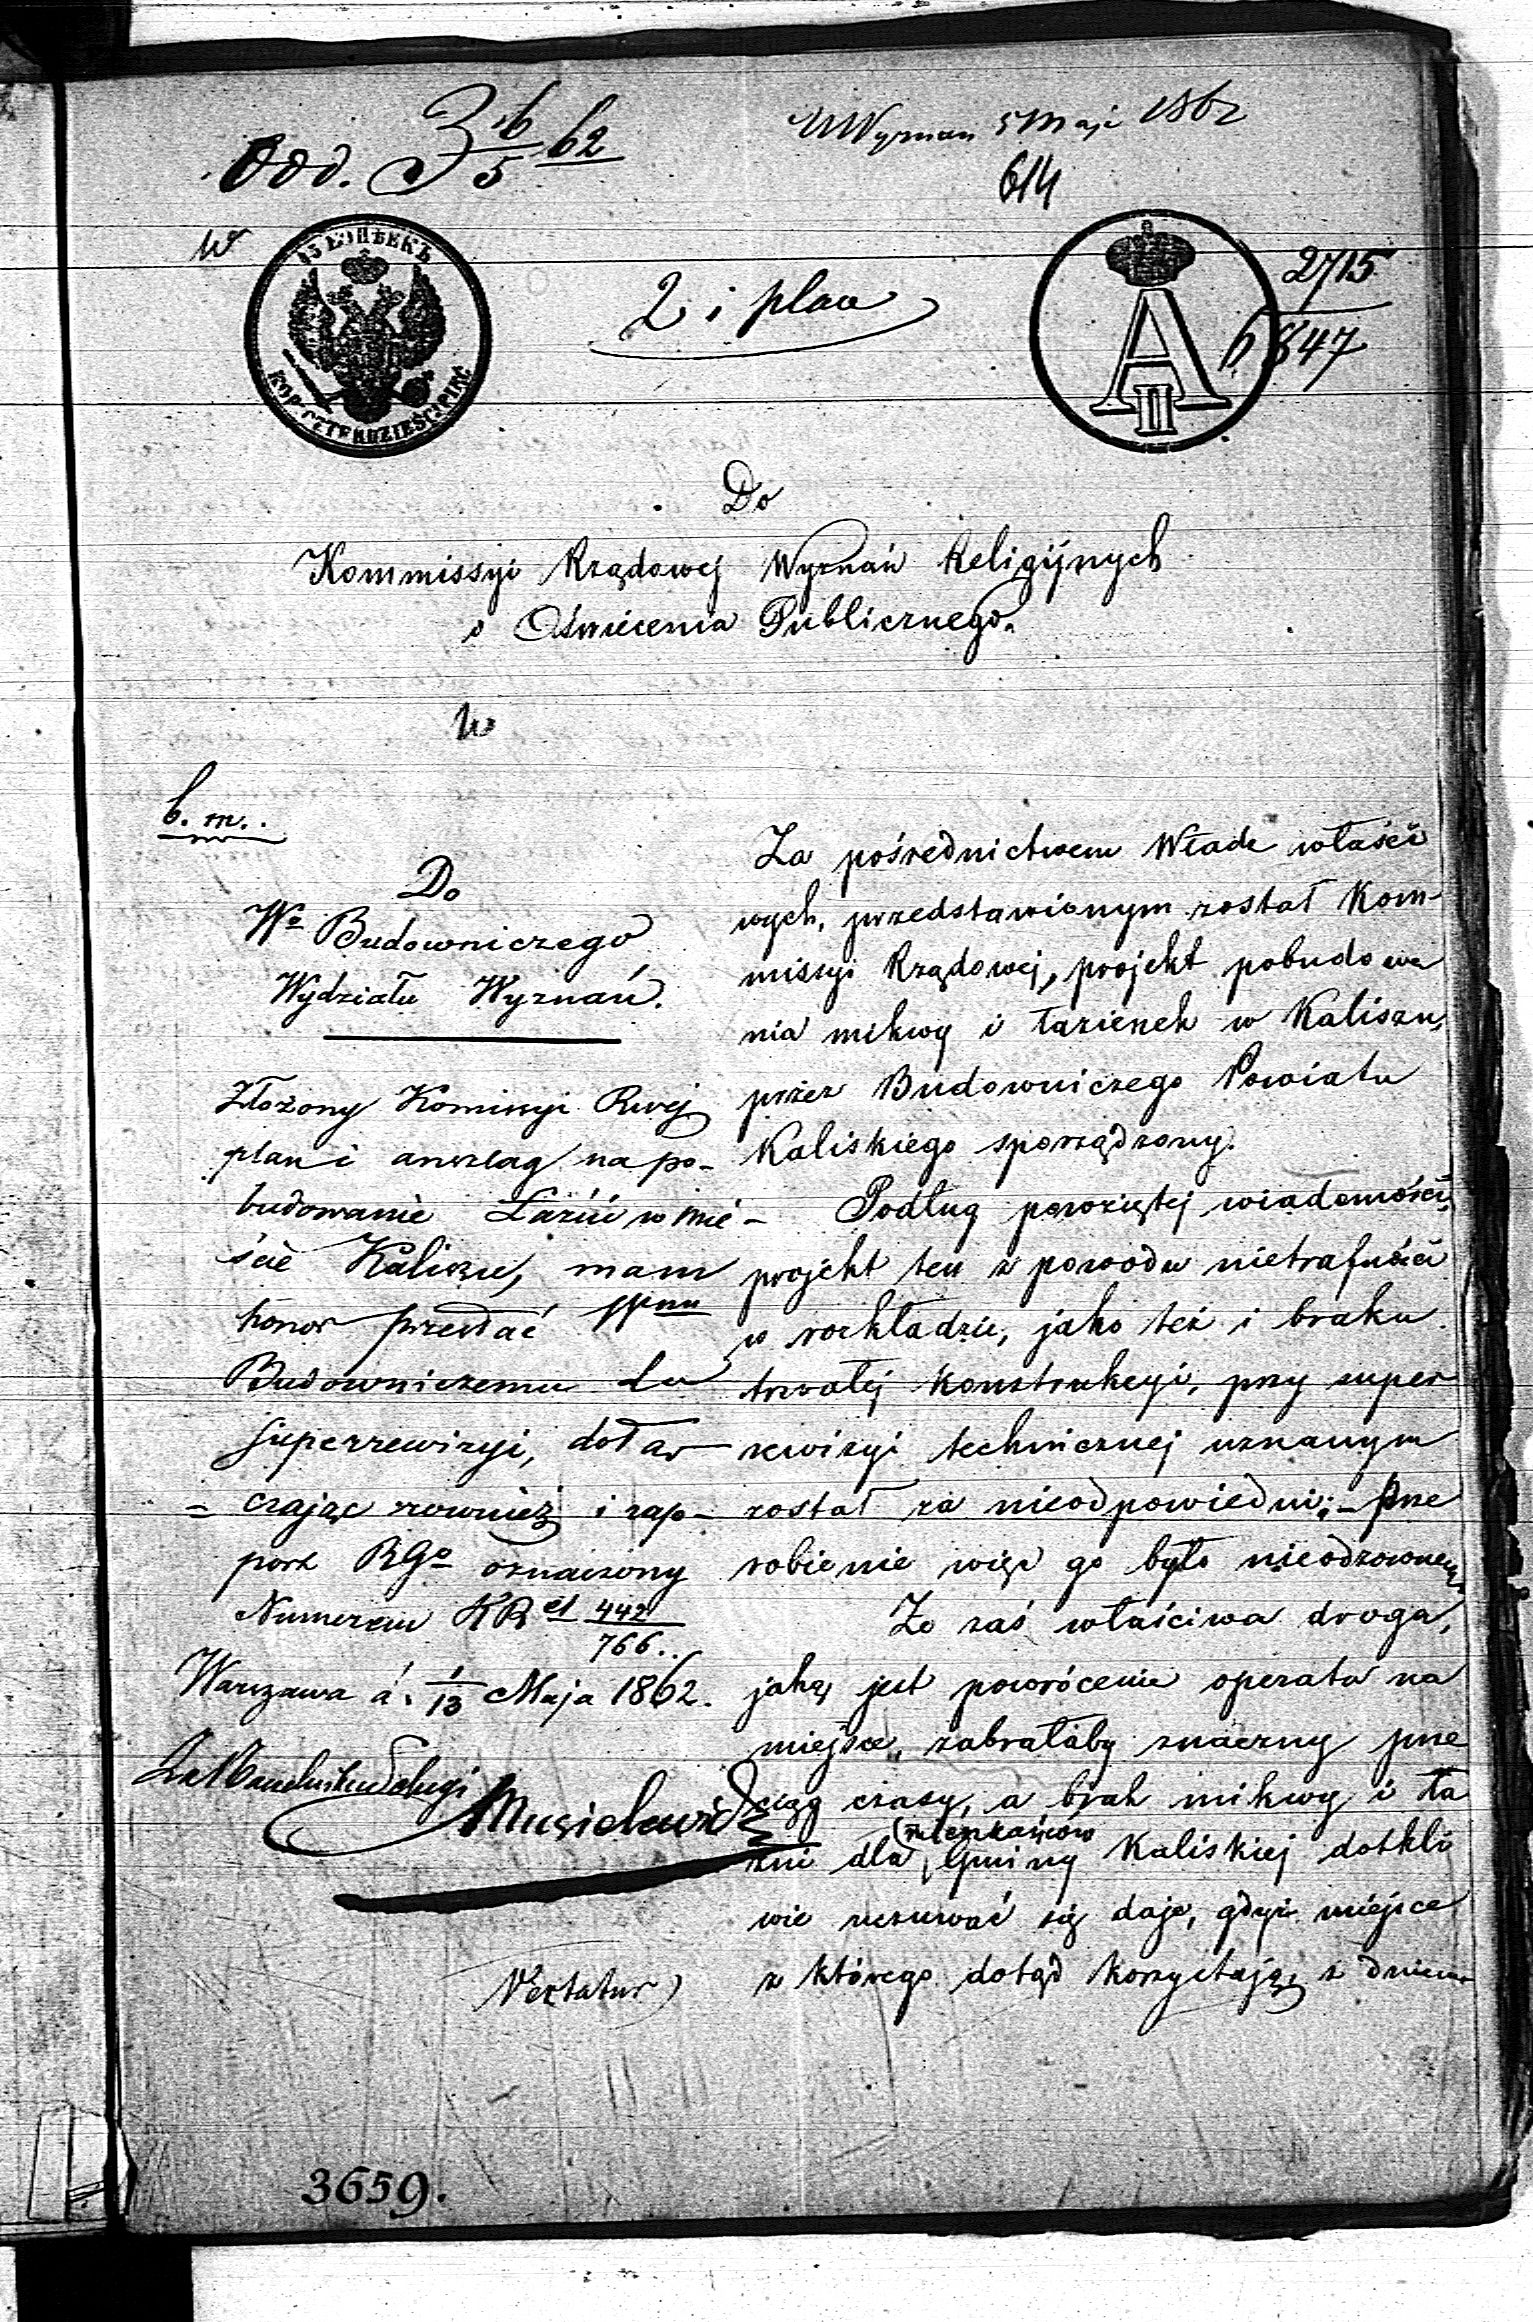 Odd. 3 6/5 62
WWyznań 5 Maja 1862
614
w
45 КОПѢЕКЪ
KOP. CZTERDZIEŚCI PIĘĆ
2 i plan
A II
2715
6847
Do
Kommissyi Rządowej Wyznań Religijnych
i Oświecenia Publicznego.
w
b. m.
Do
Wo Budowniczego
Wydziału Wyznań.
Złożony Komissyi Rwej
plan i anszlag na po-
budowanie Łaźni w mie-
ście Kaliszu, mam
honor przesłać
Budowniczemu do
superrewizyi, dołą-
= czając również i rap-
port RGo oznaczony
Numerem KR 442
766.
Warszawa d. 1/13 Maja 1862.
Za Naczelnika Służby
Vertatur
Za pośrednictwem Władz właści
wych, przedstawionym został Kom-
missyi Rządowej, projekt pobudowa
nia mikwy i łazienek w Kaliszu,
przez Budowniczego Powiatu
Kaliskiego sporządzony.
Podług powziętej wiadomości,
projekt ten z powodu nietrafności
w rozkładzie, jako też i braku
trwałej konstrukcyi, przy super
rewizyi technicznej uznanym
został za nieodpowiedni; - prze
robienie więc go było nieodzownem
Że zaś właściwa droga,
jaką jest powrócenie operatu na
miejsce, zabrałaby znaczny prze
ciąg czasu, a brak mikwy i ła
mieszkańców
zni dla Gminy Kaliskiej dotkli
wie uczuwać się daje, gdyż miejsce
z którego dotąd korzystają, z dniem
3659.